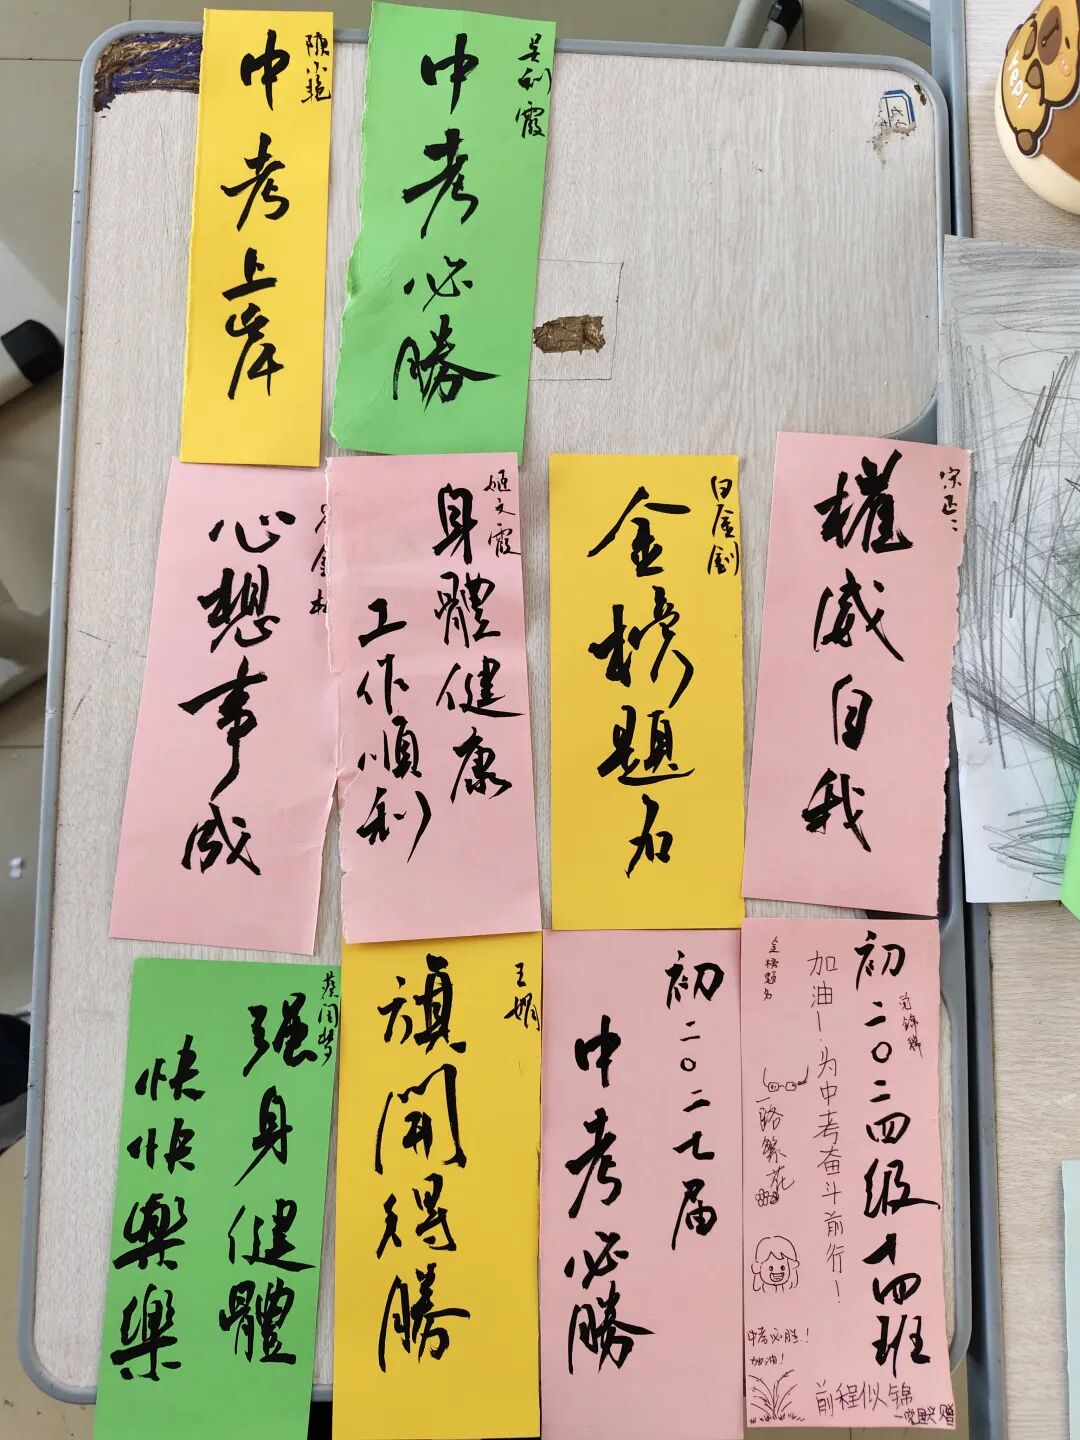 中考上岸
陳小艳
中考必勝
吴利霞
心想事成
身體健康
工作順利
姬文霞
金榜題名
白金劍
權威自我
宗正二
强身健體
快快樂樂
蔡闰梦
旗開得勝
王娴
初二〇二七届
中考必勝
初二〇二四级十四班
加油！为中考奋斗前行！
金榜题名
一路繁花
中考必胜！
加油！
前程似锦